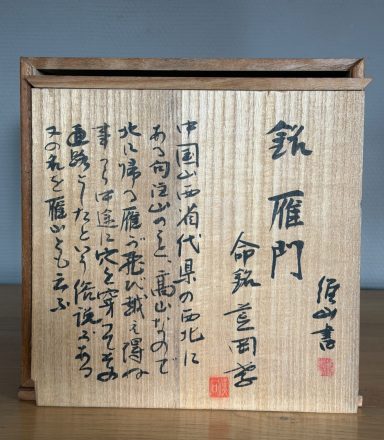 銘 雁門
命銘 芦岡学
任山書
中国山西省代県の西北に
ある句注山のこと、高山なので
北に帰る雁が飛び越え得ぬ
事より中途に穴を穿ってその
通路としたという俗説がある
又の名を雁山とも云ふ